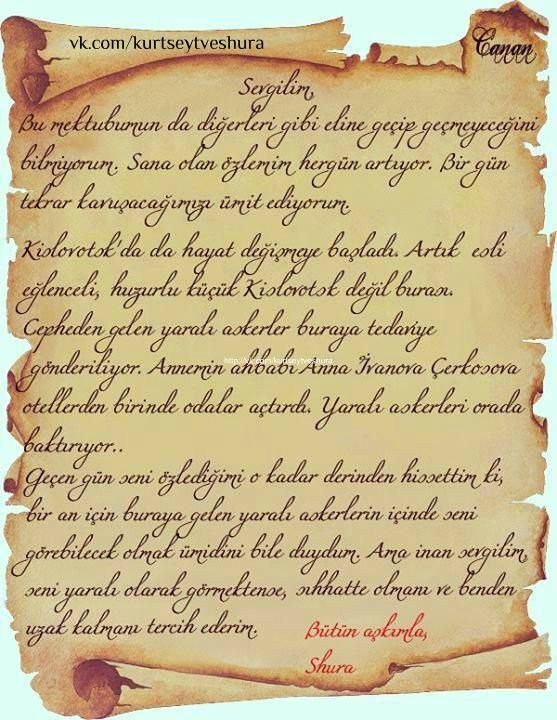 vk.com/kurtseytveshura
Canan
Sevgilim,
Bu mektubumun da diğerleri gibi eline geçip geçmeyeceğini
bilmiyorum. Sana olan özlemim hergün artıyor. Bir gün
tekrar kavuşacağımızı ümit ediyorum.
Kislovotsk'da da hayat değişmeye başladı. Artık esli
eğlenceli, huzurlu küçük Kislovotsk değil burası.
Cepheden gelen yaralı askerler buraya tedaviye
http://vk.com/kurtseytveshura
gönderiliyor. Annemin ahbabı Anna İvanova Çerkosova
otellerden birinde odalar açtırdı. Yaralı askerleri orada
baktırıyor..
Geçen gün seni özlediğimi o kadar derinden hissettim ki,
bir an için buraya gelen yaralı askerlerin içinde seni
görebilecek olmak ümidini bile duydum. Ama inan sevgilim,
seni yaralı olarak görmektense, sıhhatte olmanı ve benden
uzak kalmanı tercih ederim.
Bütün aşkımla,
Shura